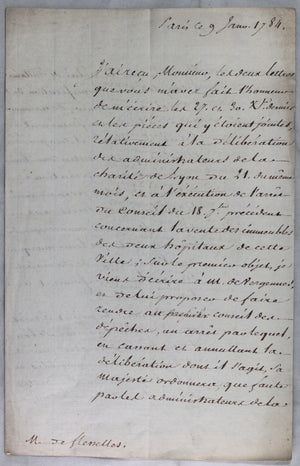 Paris le 9 Janv. 1784.
J'ai reçu, Monsieur, les deux lettres
que vous m'avez fait l'honneur
de m'écrire les 27. et 30. Xbre dernier
et les pièces qui y étoient jointes,
relativement à la délibération
des administrateurs de la
charité de Lyon du 21. du même
mois, et à l'exécution de l'arrêt
du Conseil du 18. 7bre précédent
concernant la vente des immeubles
des deux hôpitaux de cette
Ville; Sur le premier objet, je
viens d'écrire à M. de Vergennes,
et de lui proposer de faire
rendre au premier conseil des
dépêches, un arrêt par lequel,
en cassant et annullant la
délibération dont il s'agit, Sa
Majesté ordonnera, que faute
par les administrateurs de la
M. de flesselles.